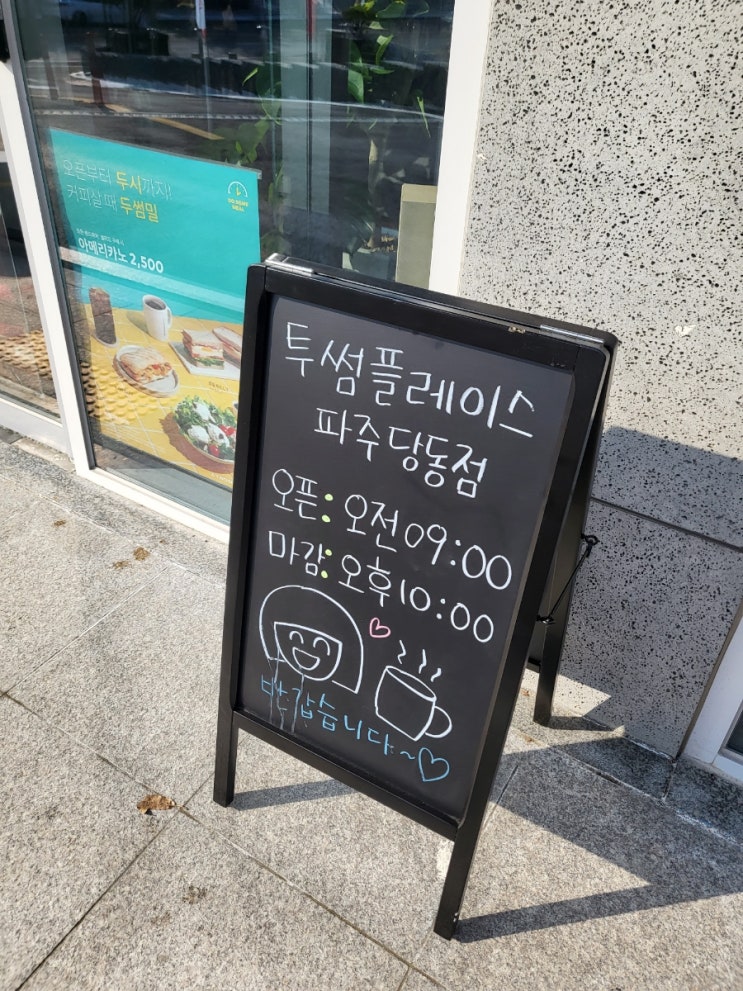 오픈부터 두시까지!
커피살 때 두썸밀
아메리카노 2,500
투썸플레이스
파주당동점
오픈: 오전 09:00
마감: 오후 10:00
반갑습니다~